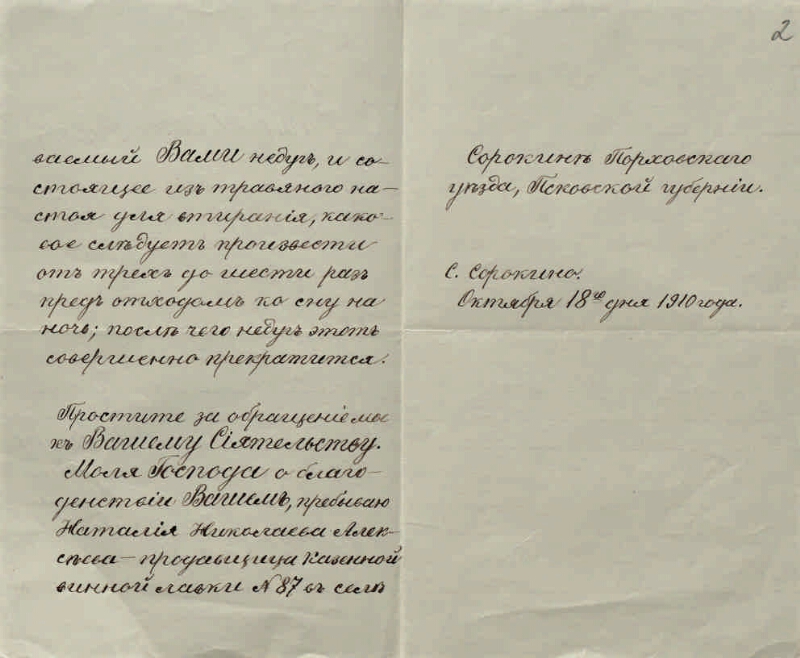 ваемый Вами недугъ, и со-
стоящее изъ травяного на-
стоя для втиранія, како-
вое слѣдуетъ произвести
отъ трехъ до шести разъ
предъ отходомъ ко сну на
ночь; послѣ чего недугъ этотъ
совершенно прекратится.
Простите за обращеніе мое
къ Вашему Сіятельству.
Моля Господа о благо-
денствіи Вашемъ, пребываю
Наталія Николаева Алек-
сѣева – продавщица Казенной
винной лавки № 87 въ селѣ
2
Сорокинѣ Порховскаго
уѣзда, Псковской губерніи.
С. Сорокино.
Октября 18го дня 1910 года.